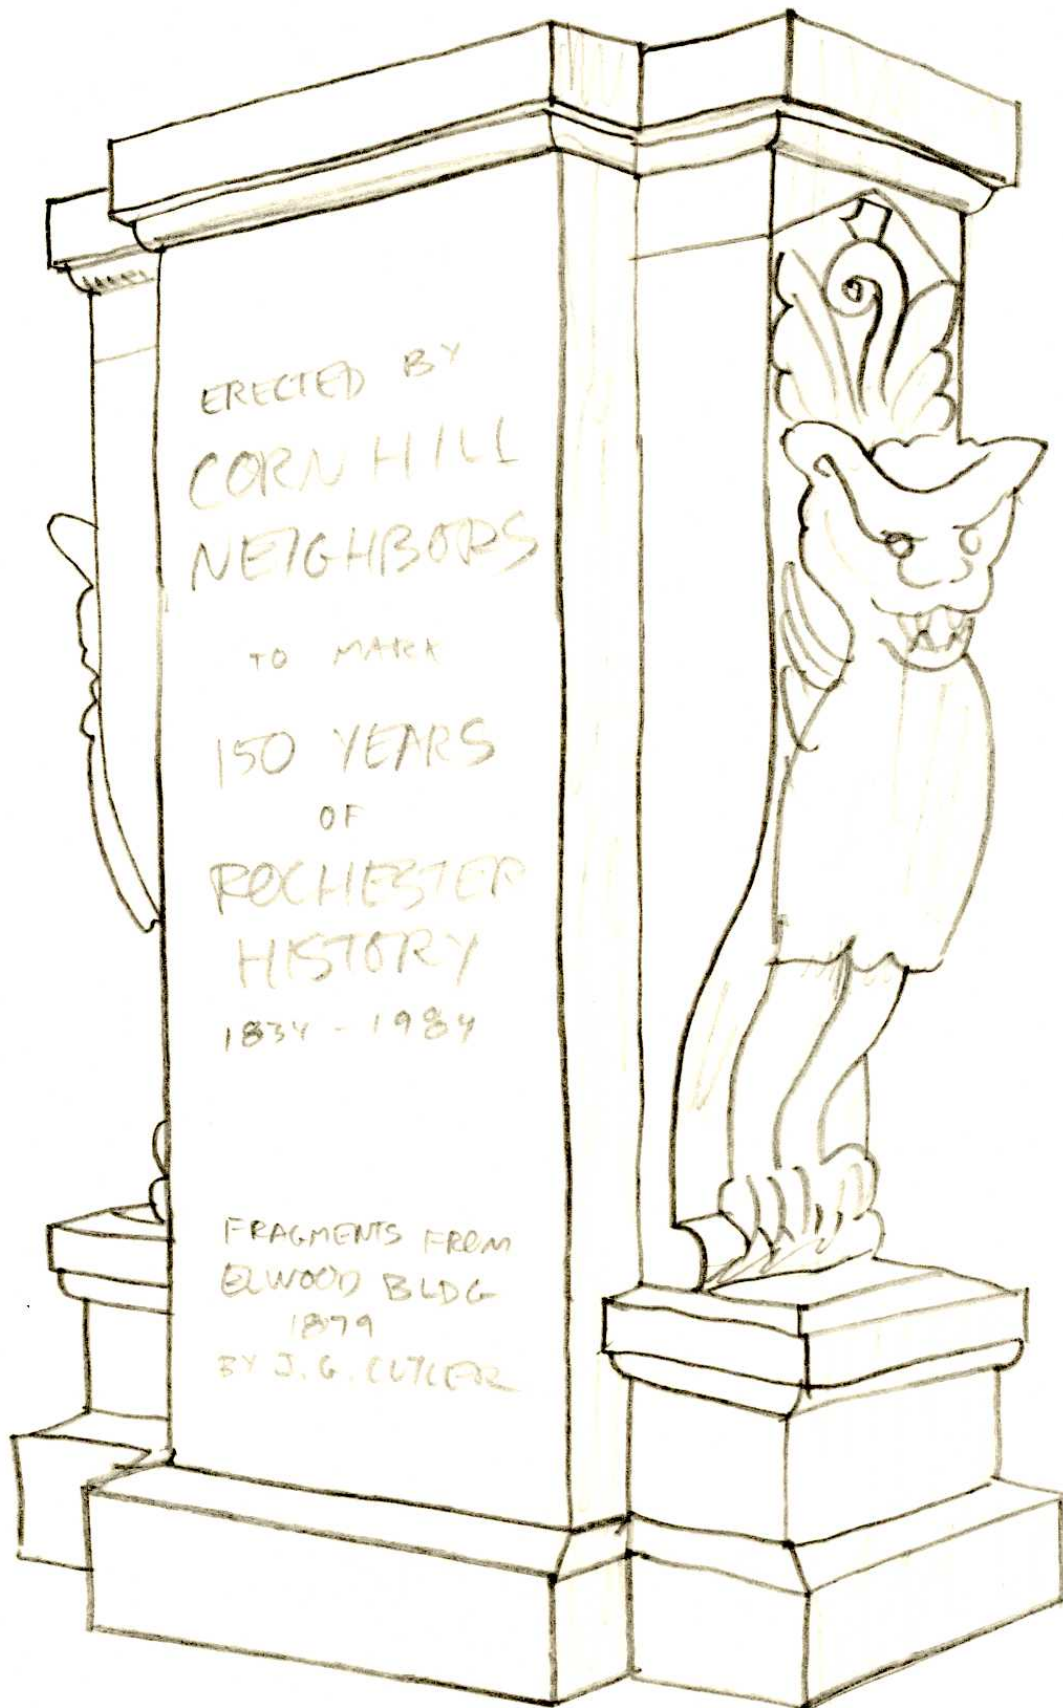 ERECTED BY
CORN HILL
NEIGHBORS
TO MARK
150 YEARS
OF
ROCHESTER
HISTORY
1834 - 1984
FRAGMENTS FROM
ELWOOD BLDG
1879
BY J. G. CUTLER